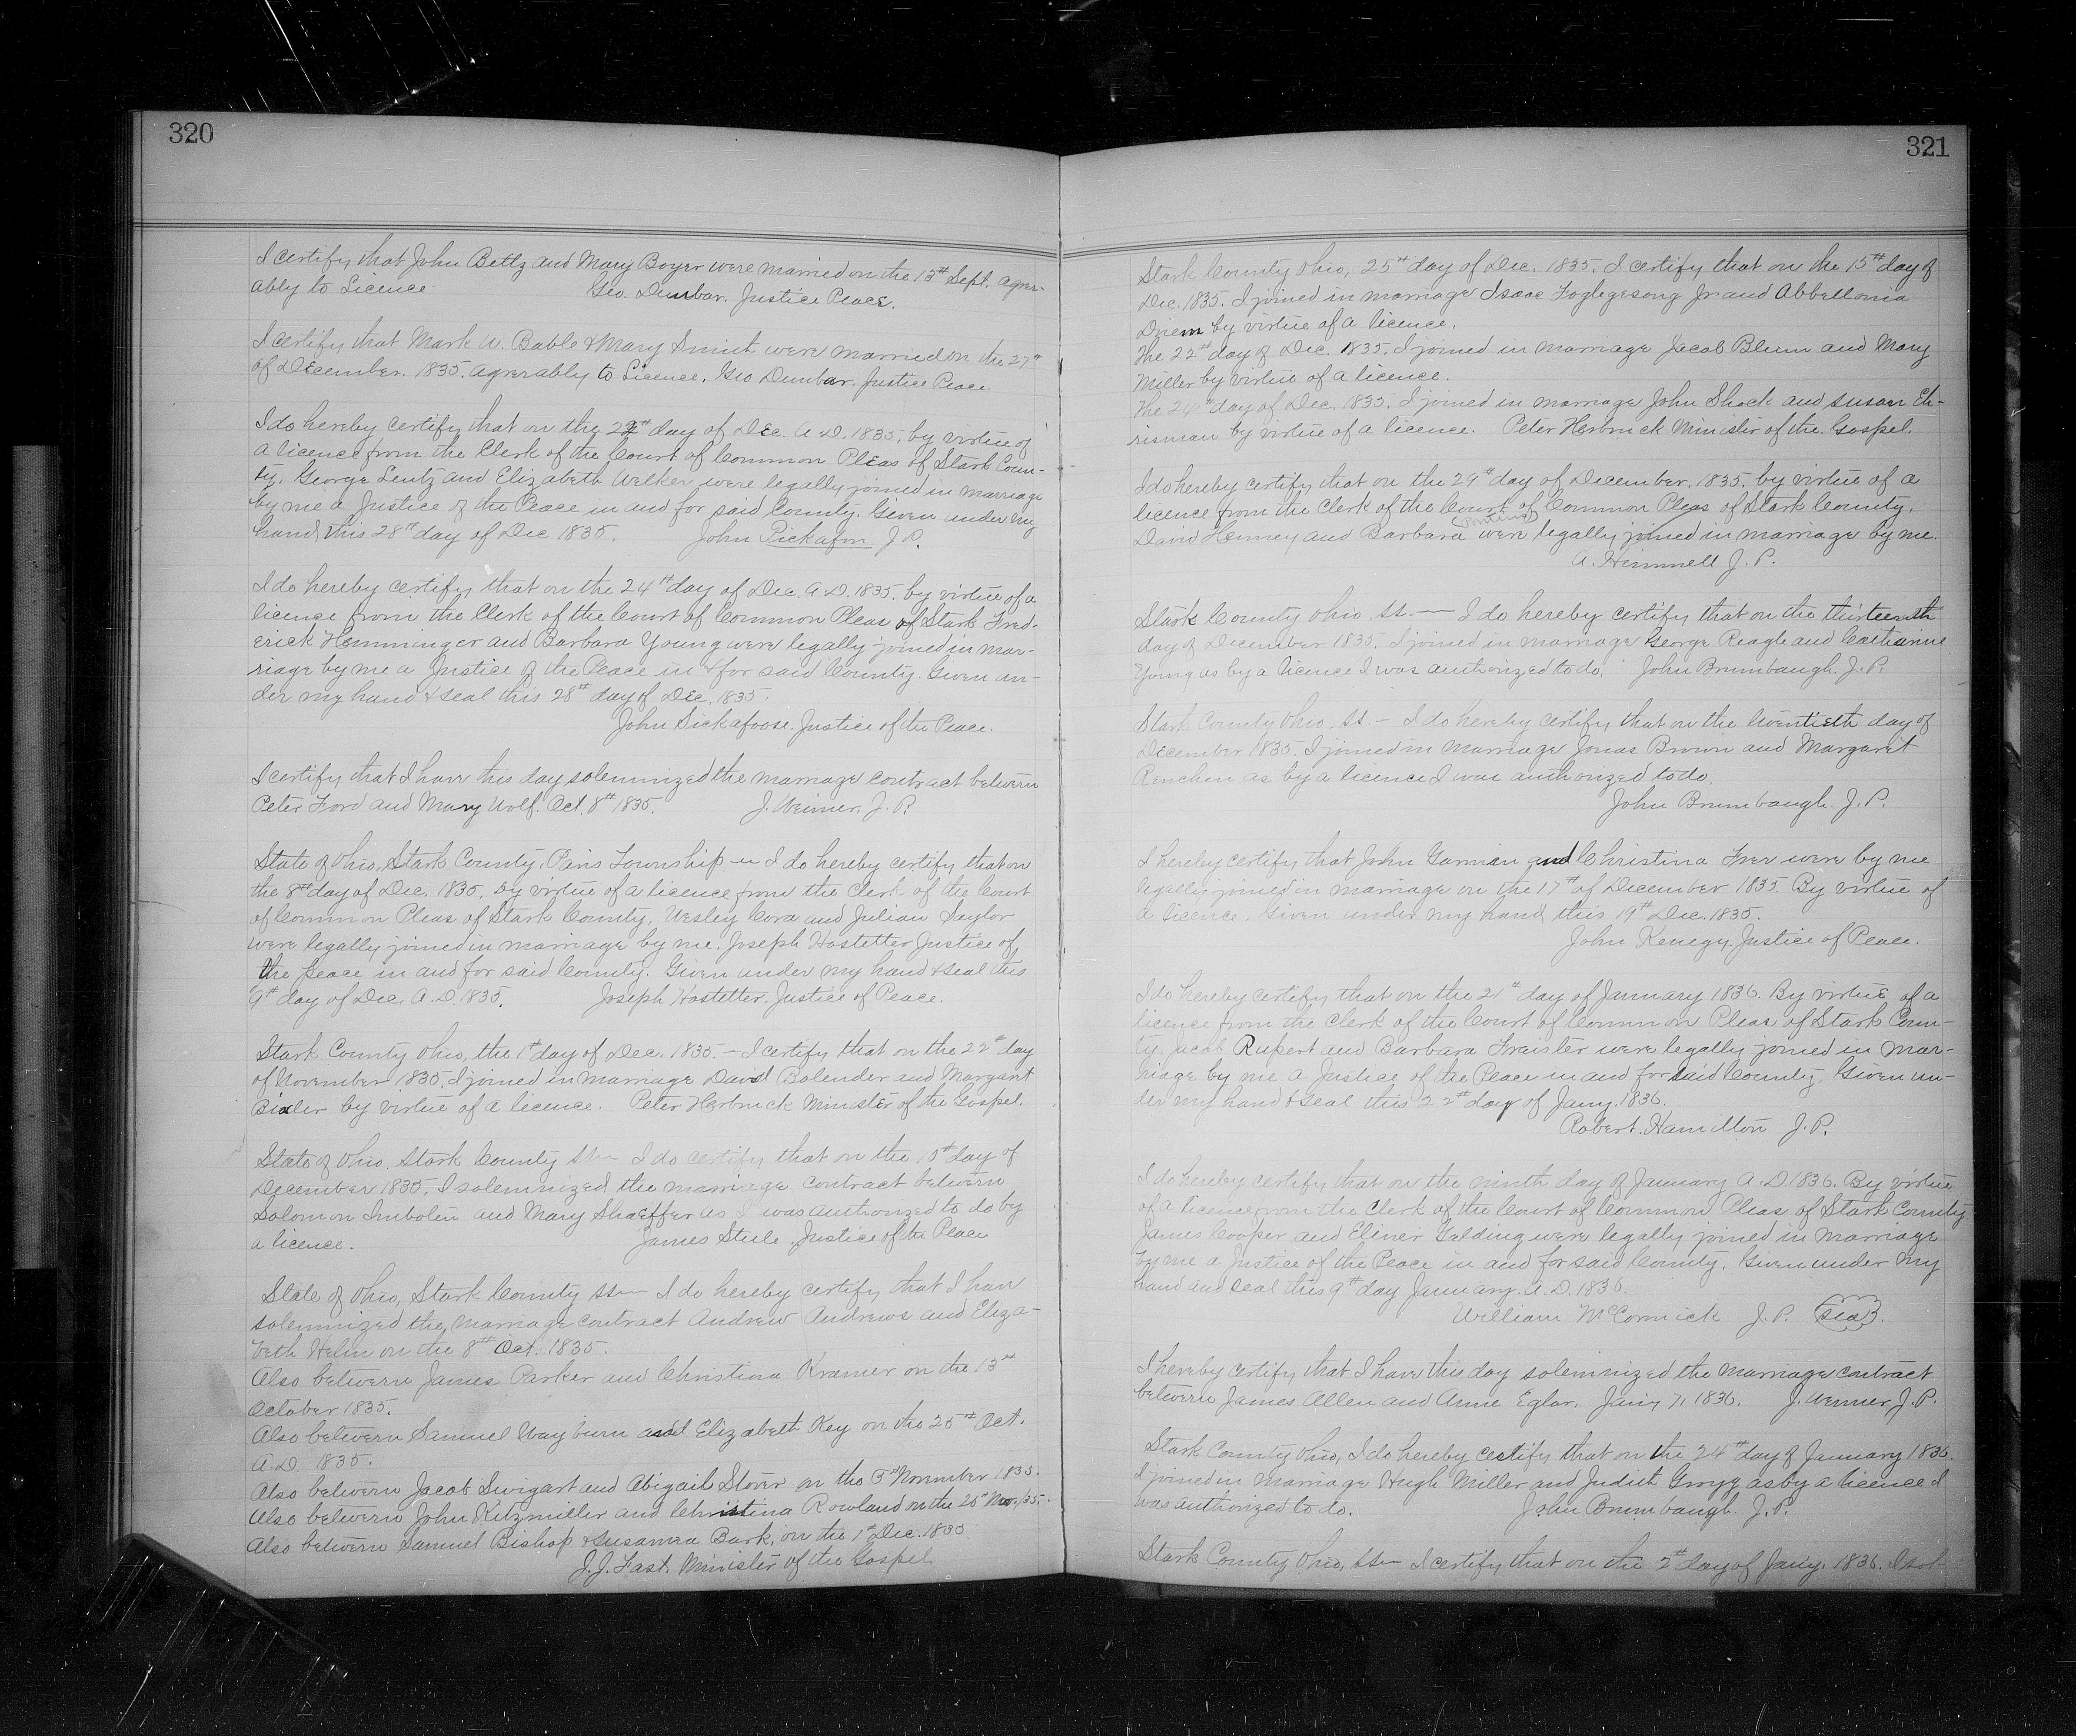 320
I certify that John Beltz and Mary Boyer were married on the 13th Sept. agree-
ably to Licence Geo. Dunbar. Justice Peace.
I certify that Mark W. Bable & Mary Smith were married on the 27th
of December. 1835. agreeably to Licence. Geo Dunbar. Justice Peace
I do hereby certify that on the day of Dec. A.D. 1835. by virtue of
a licence from the Clerk of the Court of Common Pleas of Stark Coun-
ty. George Lentz and Elizabeth Welker were legally joined in marriage
by me a Justice of the Peace in and for said County. Given under my
hand this 28th day of Dec 1835. John Pickafon J.P.
I do hereby certify that on the 24th day of Dec. A.D. 1835. by virtue of a
licence from the Clerk of the Court of Common Pleas of Stark Fred-
erick Hemminger and Barbara Young were legally joined in mar-
riage by me a Justice of the Peace in & for said County. Given un-
der my hand & seal this 28th day of Dec. 1835.
John Sickafoose. Justice of the Peace.
I certify that I have this day solemnized the marriage contract between
Peter Ford and Mary Wolf. Oct. 8th 1835. J. Weimer. J.P.
State of Ohio, Stark County. Paris Township I do hereby certify that on
the 8th day of Dec. 1835. by virtue of a licence from the Clerk of the Court
of Common Pleas of Stark County. Wesley Cora and Julian Saylor
were legally joined in marriage by me. Joseph Hostetter Justice of
the peace in and for said County. Given under my hand & seal this
9th day of Dec. A.D. 1835. Joseph Hostetter. Justice of Peace.
Stark County Ohio, the 1st day of Dec. 1835. — I certify that on the 22nd day
of November 1835. I joined in marriage David Bolender and Margaret
Sixler by virtue of a licence. Peter Herbruck Minister of the Gospel.
State of Ohio. Stark County ss— I do certify that on the 10th day of
December 1835. I solemnized the marriage contract between
Solomon Imboden and Mary Shaeffer as I was authorized to do by
a licence. James Steele. Justice of the Peace
State of Ohio, Stark County ss— I do hereby certify that I have
solemnized the marriage contract Andrew Andrews and Eliza-
beth Helm on the 8th Oct. 1835.
Also between James Parker and Christina Kramer on the 13th
October 1835.
Also between Samuel Wayburn and Elizabeth Key on the 25th Oct.
A.D. 1835.
Also between Jacob Swigart and Abigail Stover on the November 1835.
Also between John Kitzmiller and Christina Rowland on the 25th Nov. /35.
Also between Samuel Bishop & Susanna Bark, on the 1st Dec. 1835
J.J. Fast. Minister of the Gospel
321
Stark County Ohio, 25th day of Dec. 1835. I certify that on the 15th day of
Dec. 1835. I joined in marriage Isaac Foglegesong Jr and Abbellonia
Driem by virtue of a licence.
The 22nd day of Dec. 1835. I joined in marriage Jacob Blum and Mary
Miller by virtue of a licence.
The 24th day of Dec. 1835. I joined in marriage John Shock and Susan Ch-
risman by virtue of a licence. Peter Herbruck Minister of the Gospel.
I do hereby certify that on the 29th day of December, 1835. by virtue of a
licence from the Clerk of the Court of Common Pleas of Stark County.
David Henney and Barbara were legally joined in marriage by me.
A. Himmell J.P.
Stark County Ohio ss.— I do hereby certify that on the thirteenth
day of December 1835. I joined in marriage George Reagle and Catharine
Young as by a licence I was authorized to do. John Brumbaugh. J.P.
Stark County Ohio, ss.— I do hereby certify that on the twentieth day of
December 1835. I joined in marriage Jonas Brown and Margaret
Renchen as by a licence I was authorized to do.
John Brumbaugh J.P.
I hereby certify that John Garman and Christina Frer were by me
legally joined in marriage on the 17th of December 1835. By virtue of
a licence. Given under my hand this 19th Dec. 1835.
John Kenegy. Justice of Peace.
I do hereby certify that on the 21st day of January 1836. By virtue of a
licence from the Clerk of the Court of Common Pleas of Stark Coun-
ty. Jacob Rupert and Barbara Treister were legally joined in mar-
riage by me a Justice of the Peace in and for said County. Given un-
der my hand & seal this 22nd day of Jany. 1836.
Robert. Hamilton J.P.
I do hereby certify that on the ninth day of January A.D. 1836. By virtue
of a licence from the Clerk of the Court of Common Pleas of Stark County
James Cooper and Eliner Galding were legally joined in marriage
by me a Justice of the Peace in and for said County. Given under my
hand and seal this 9th day January. A.D. 1836.
William McCormick J.P. Seal.
I hereby certify that I have this day solemnized the marriage contract
between James Allen and Anne Eglar. Jany 7, 1836. J. Weimer J.P.
Stark County Ohio, I do hereby certify that on the 24th day of January 1836.
I joined in marriage Hugh Miller and Judith as by a licence I
was authorized to do. John Brumbaugh J.P.
Stark County Ohio, ss— I certify that on the 2nd day of Jany. 1836. I sol